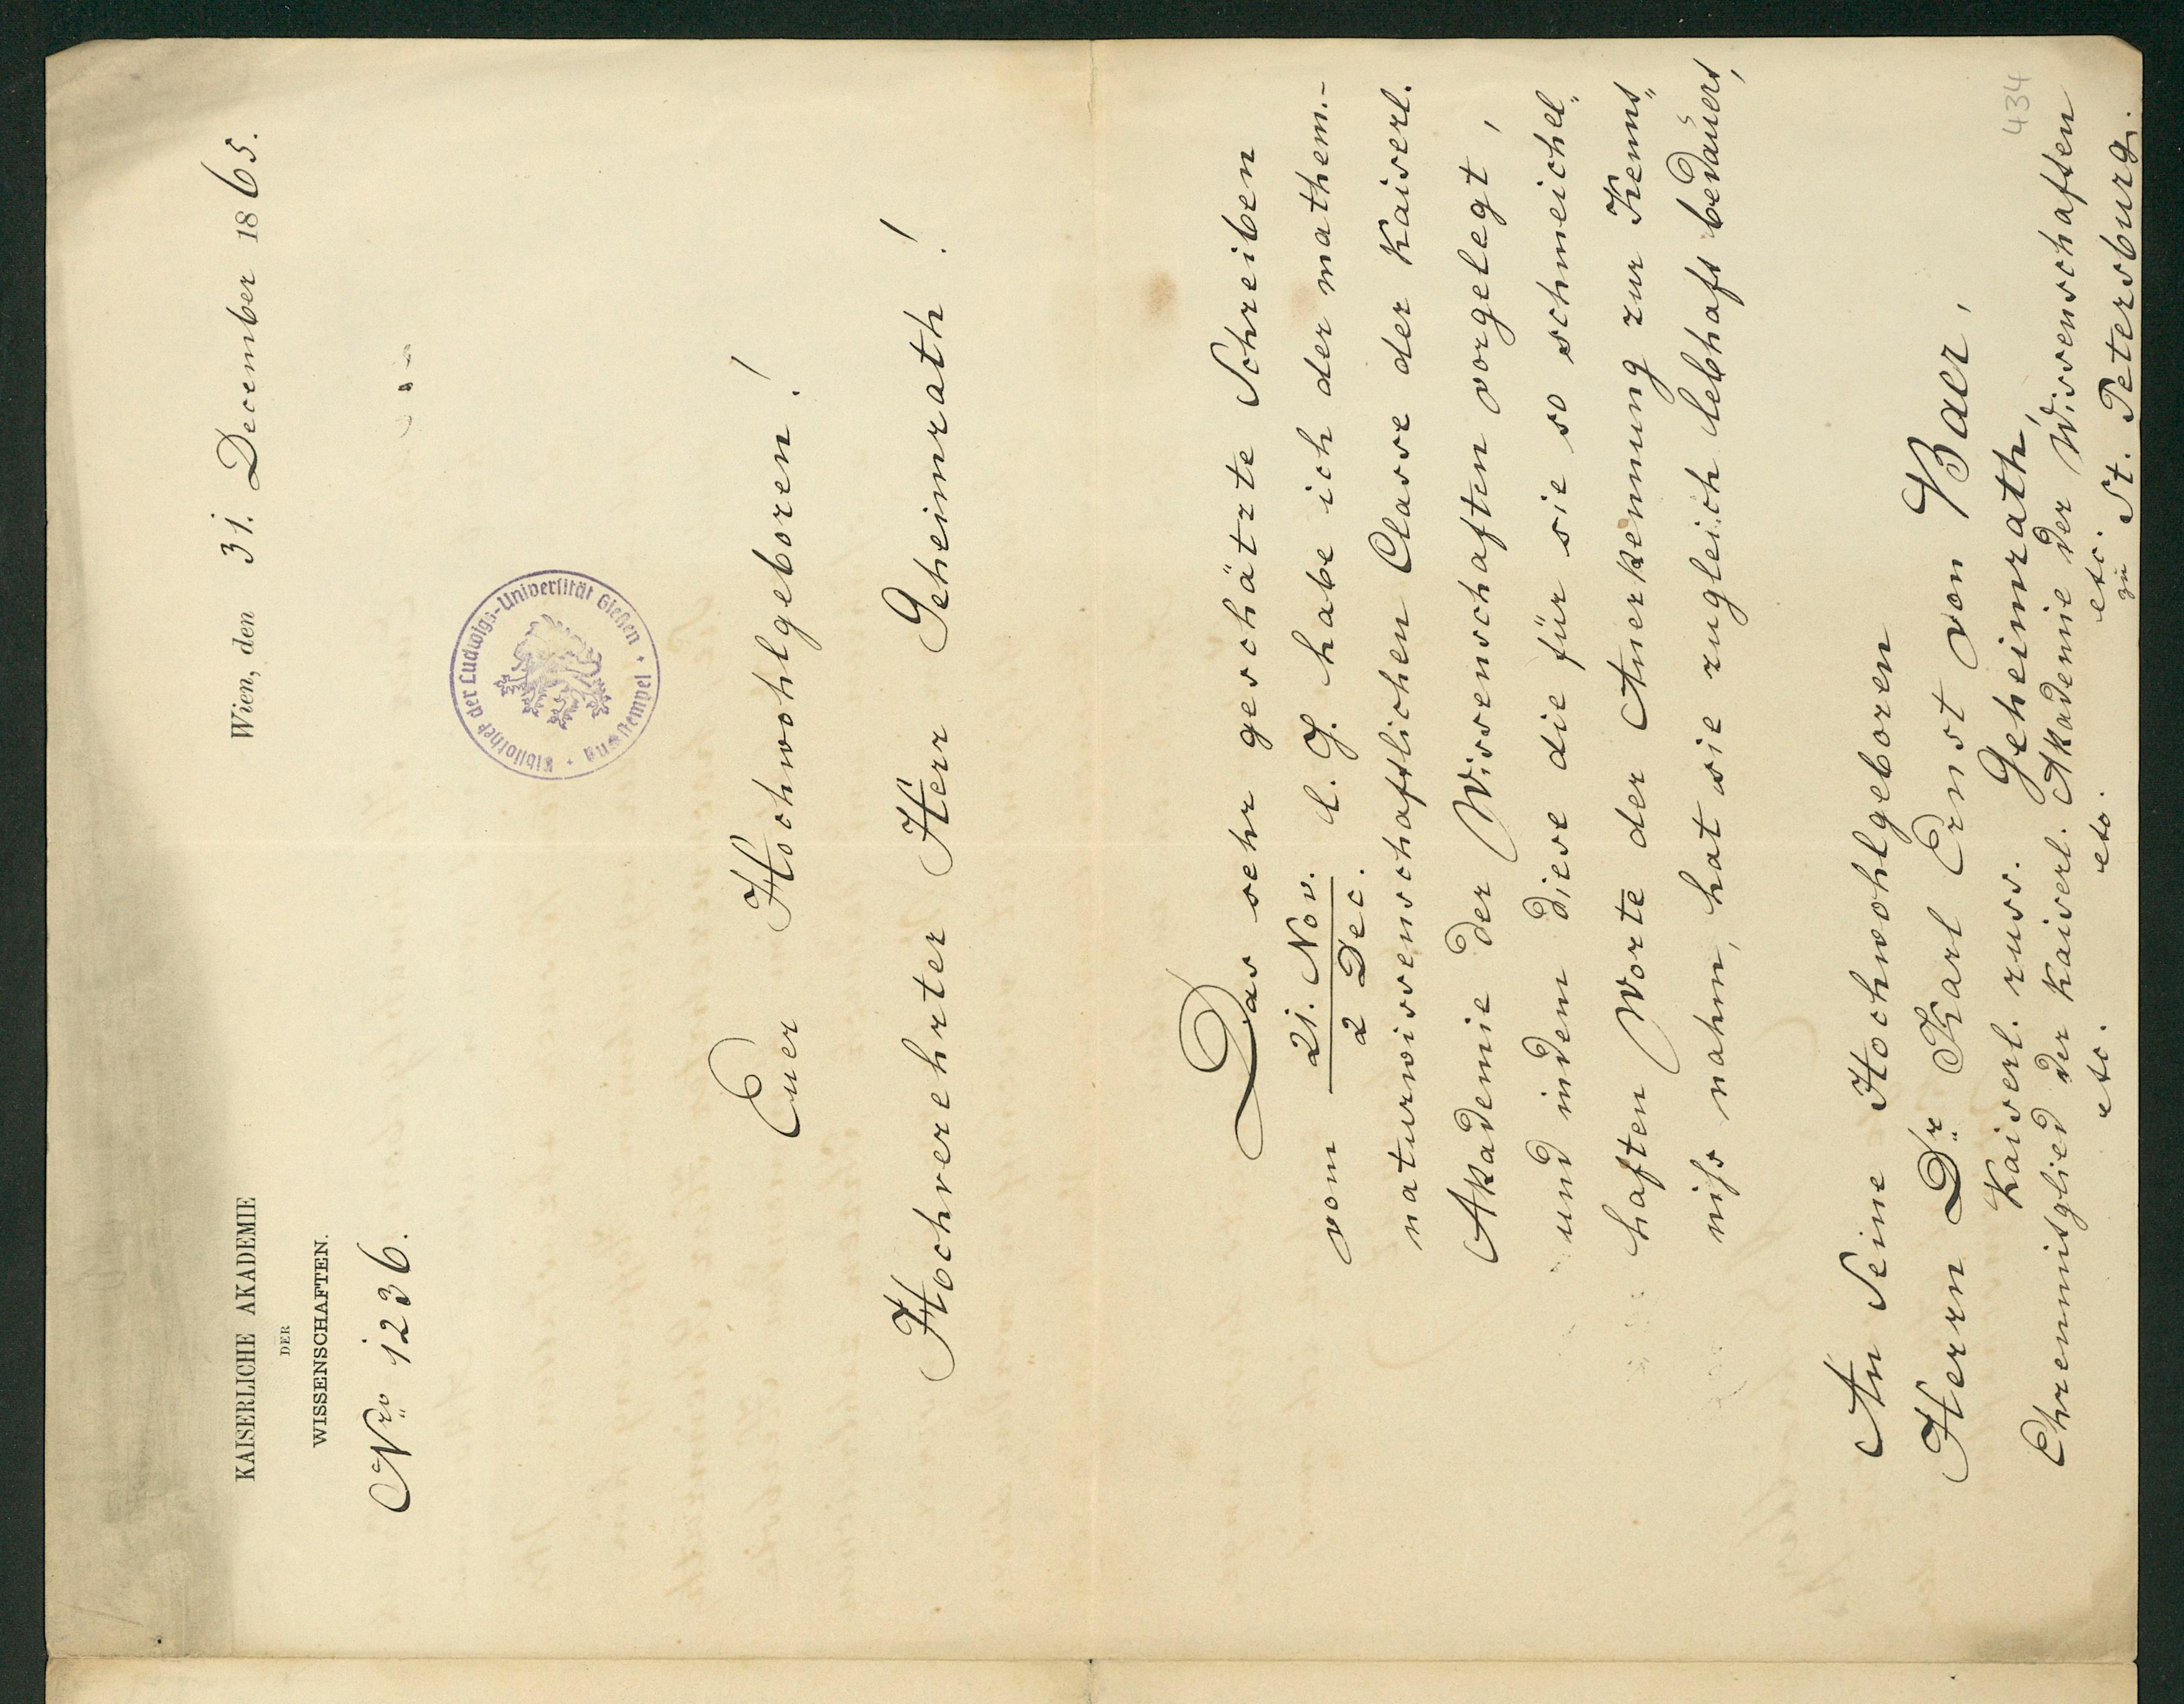 KAISERLICHE AKADEMIE
DER
WISSENSCHAFTEN.
Nro 1236.
Wien, den 31. December 1865.
Bibliothek der Ludwigs-Universität Gießen · Austempel ·
Euer Hochwohlgeboren!
Hochverehrter Herr Geheimrath!
Das sehr geschätzte Schreiben
vom 21. Nov./2 Dec. l. J. habe ich der mathem.-
naturwissenschaftlichen Classe der Kaiserl.
Akademie der Wissenschaften vorgelegt,
und indem diese die für sie so schmeichel„
haften Worte der Anerkennung zur Kennt„
niss nahm, hat sie zugleich lebhaft bedauert,
An Seine Hochwohlgeboren
Herrn Dr. Karl Ernst von Baer,
Kaiserl. russ. Geheimrath,
Ehrenmitglied der Kaiserl. Akademie der Wissenschaften
etc. etc. etc. zu St. Petersburg.
434